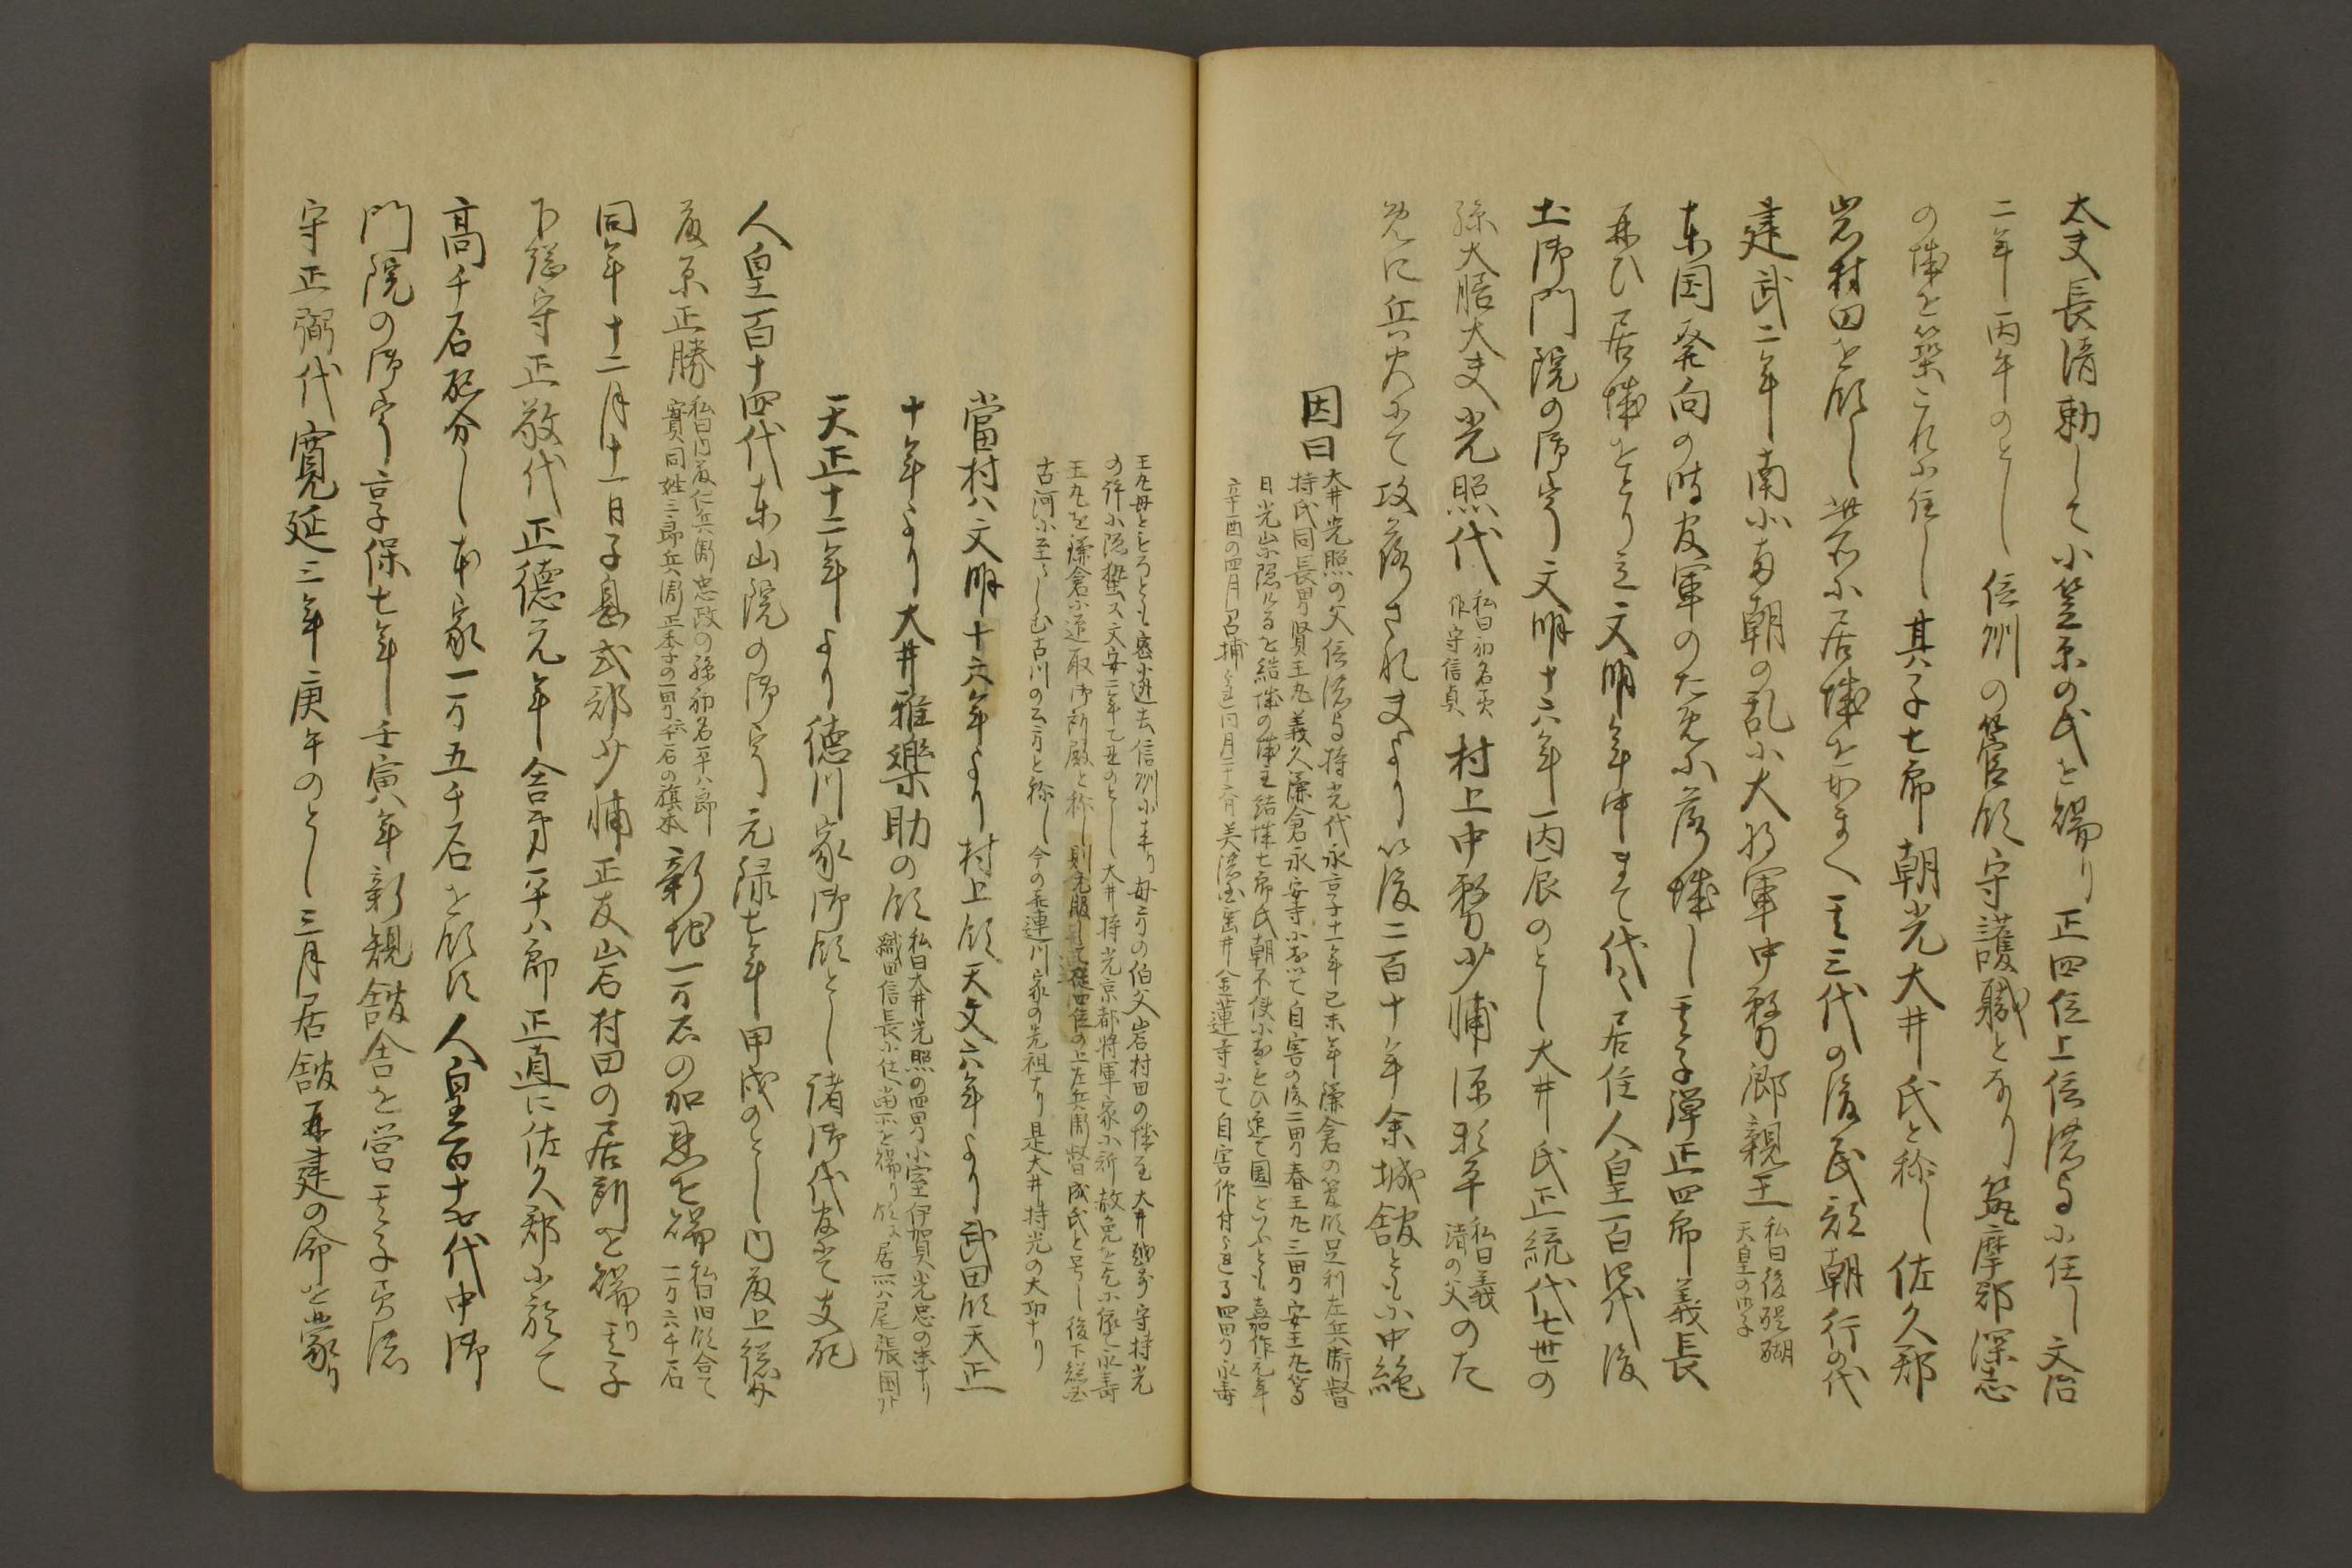 太夫長清勅して小笠原の氏を賜り正四位上信濃守に任し文治
二年丙午のとし信州の管領守護職となり筑摩郡深志
の城を築これに住し其子七郎朝光大井氏と称し佐久郡
岩村田を領し此所に居城をかまへ其三代の後民部朝行の代
建武二年南北両朝の乱に大将軍中務卿親王
私曰後醍醐
天皇の御子
東国発向の時官軍のために落城し其子弾正四郎義長
再ひ居城をとり立文明年中まて代々居住人皇百四代後
土御門院の御宇文明十六年丙辰のとし大井氏正統代七世の
孫大膳大夫光照代
私曰初名美
作守信貞
村上中務少輔源顕平
私曰義
清の父
のた
めに兵火にて攻落され夫より以後二百十年余城館ともに中絶
因曰
大井光照の父信濃守持光代永享十一年己未年鎌倉の管領足利左兵衛督
持氏同長男賢王丸義久鎌倉永安寺において自害の後二男春王丸三男安王丸等
日光山に隠れるを結城の城主結城七郎氏朝不便におもひ迎て国といふとも嘉吉元年
辛酉の四月召捕られ同月十六日美濃国垂井金蓮寺にて自害作付らるる四男永寿
王丸母とともに密に遁去信州に来り母方の伯父岩村田の城主大井越前守持光
の許に隠蟄ス文安二年乙丑のとし大井持光京都将軍家に祈赦免を乞に依て永寿
王丸を鎌倉に迎取御所殿と称し則元服して従四位の上左兵衛督成氏と号し後下総国
古河に至らしむ古川の公方と称し今の喜連川家の先祖なり是大井持光の大功なり
當村ハ文明十六年より村上領天文六年より武田領天正
十年より大井雅樂助の領
私曰大井光照の四男小室伊賀光忠の末なり
織田信長に仕当所を賜り領す居所ハ尾張国なり
天正十二年より徳川家御領とし諸御代官にて支配
人皇百十四代東山院の御宇元禄七年甲戌のとし内藤上総介
藤原正勝
私曰内藤仁兵衛忠政の孫初名平八郎
實同姓三郎兵衛正季の一男五千石の旗本
新地一万石の加恩を賜
私曰旧領合て
一万六千石
同年十二月十一日子息式部少輔正友岩村田の居所を賜り其子
下総守正敬代正徳元年舎弟平八郎正直に佐久郡に於て
高千石配分し本家一万五千石を領す人皇百十七代中御
門院の御宇享保七年壬寅年新規舘舎を営其子美濃
守正弼代寛延三年庚午のとし三月居舘再建の命を蒙り